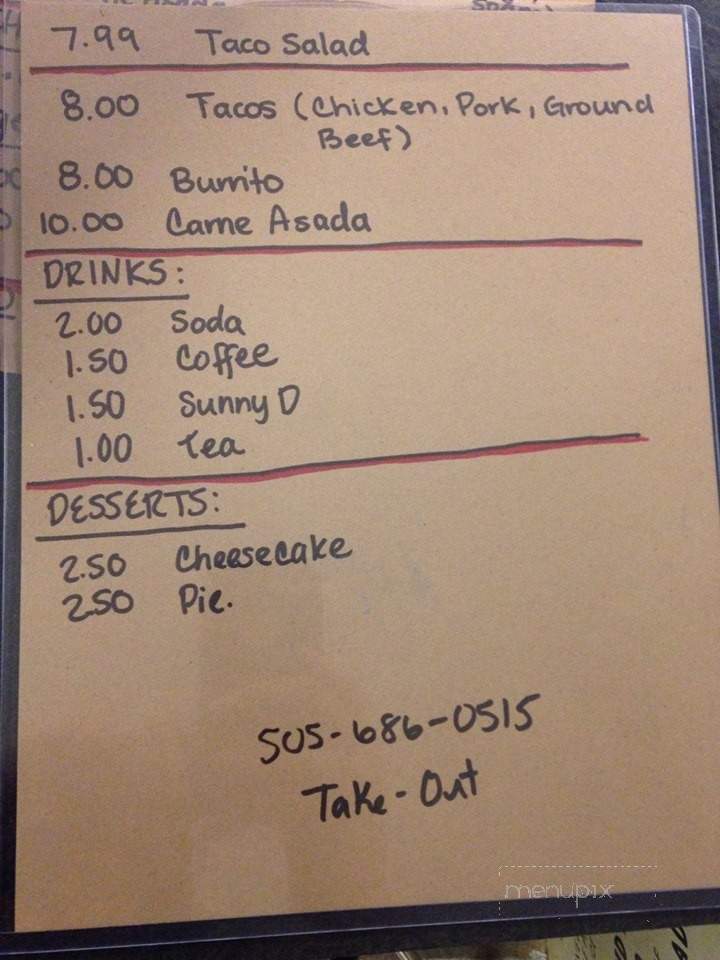 7.99 Taco Salad
8.00 Tacos (Chicken, Pork, Ground
Beef)
8.00 Burrito
10.00 Carne Asada
DRINKS:
2.00 Soda
1.50 Coffee
1.50 Sunny D
1.00 Tea
DESSERTS:
2.50 Cheesecake
2.50 Pie.
505-686-0515
Take-Out
menupix